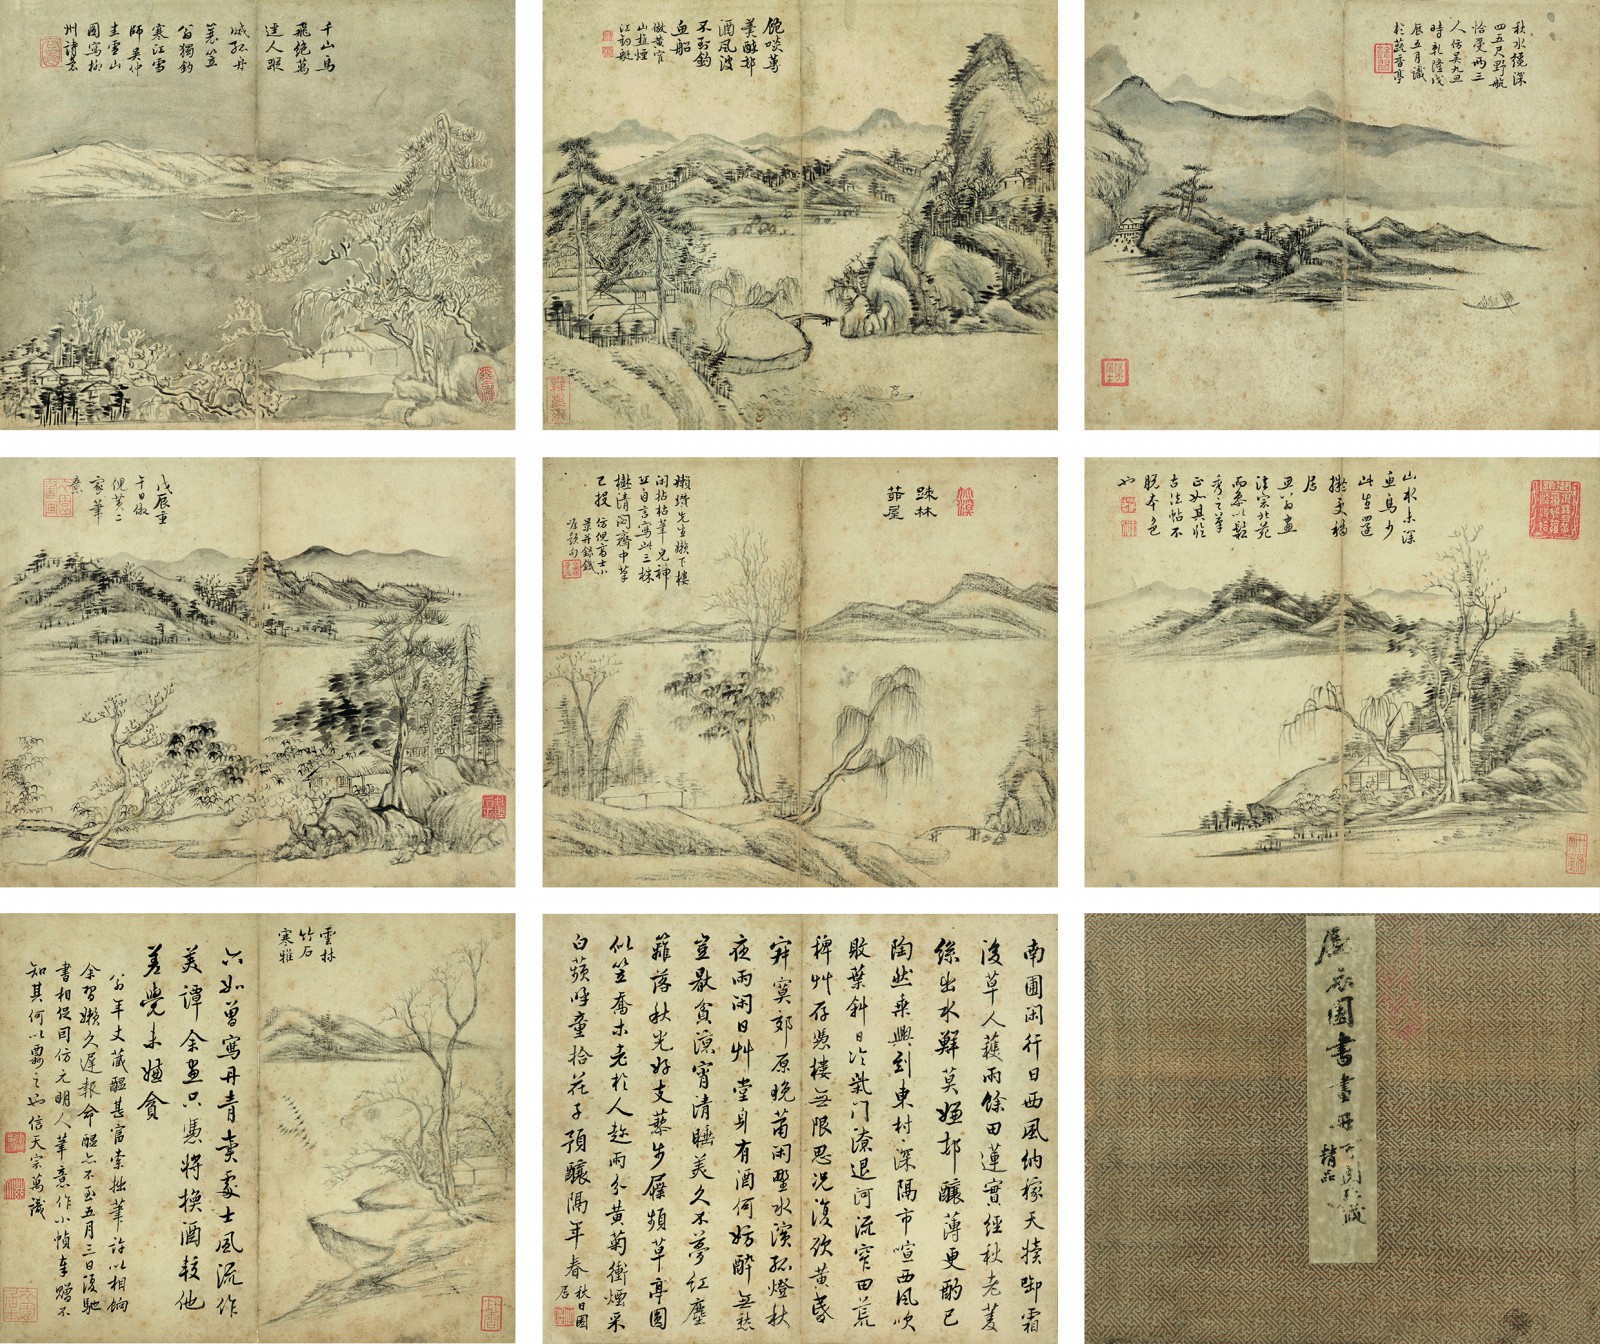 千山鳥
飛絕萬
逕人蹤
滅孤舟
蓑笠
翁獨釣
寒江雪
師吳仲
圭雪山
圖寫柳
州詩意
飽啖萬
羹醉邨
酒風波
不到釣
魚船
江釣艇
秋水纔深
四五尺野航
恰受兩三
人仿吴九丑
時乾隆戊
辰五月識
於蔬香亭
戊辰重
午日倣
倪黃二
家筆
意
疎林
茆屋
懶瓚先生懶下樓
閒拈枯筆見神
丑自言寫此三株
樹清閟齋中草
已投
仿倪高士小
景并錄
山水未深
魚鳥少
此生還
擬更移
居
法宗北苑
古法帖不
脫本色
也
雲林
竹石
寒雅
六如曽寫丹青賣處士風流作
美譚余畫只憑將換酒較他
差覺未嫌貪
年丈蔵醞甚富索拙筆許以相餉
余習懶久遲報命醞亦不至五月三日復馳
書相促因仿元明人筆意作小幀奉贈不
知其何以霸之也信天宗萬識
南圃閑行日西風納稼天犢卸霜
後草人穫雨餘田蓮實經秋老菱
絲出水鮮莫嫌邨釀薄更酌已
陶然乘興到東村深隔市喧西風吹
敗葉斜日冷柴門潦退河流窄田荒
稗艸存憑樓無限思况復欲黃昏
寂寞郊原晚莆閑墅水濱孤燈秋
夜雨閑日艸堂身有酒何妨醉無愁
豈厭貧溟宵清睡美久不夢紅塵
籬落秋光好支藜步屧頻草亭圓
似笠喬木老於人趂雨分黃菊衝煙采
白蘋呼童拾花子預釀隔年春
秋日園
居